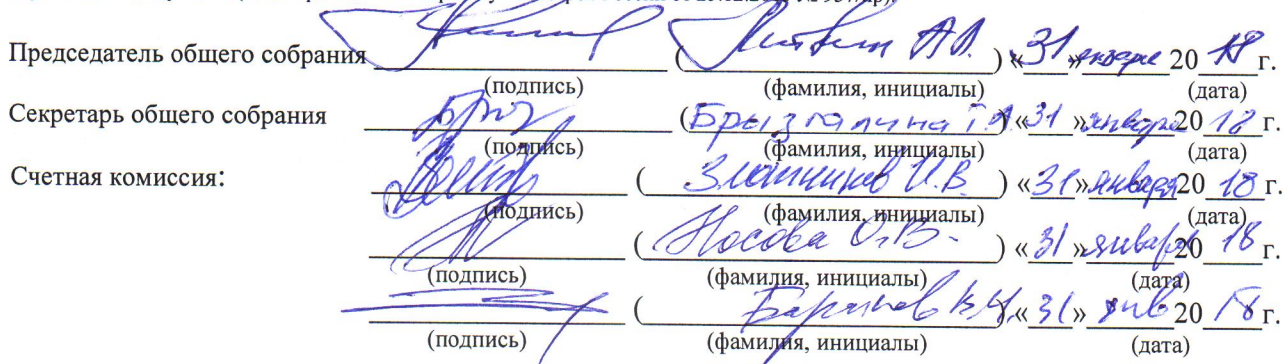 Председатель общего собрания ( Литвин А.А. ) «31» января 20 18 г.
(подпись) (фамилия, инициалы) (дата)
Секретарь общего собрания (Брызгалина Т.А) «31» января 20 18 г.
(подпись) (фамилия, инициалы) (дата)
Счетная комиссия: ( И.В. ) «31» января 20 18 г.
(подпись) (фамилия, инициалы) (дата)
( Носова О.В. ) «31» января 20 18 г.
(подпись) (фамилия, инициалы) (дата)
( ) «31» янв 20 18 г.
(подпись) (фамилия, инициалы) (дата)